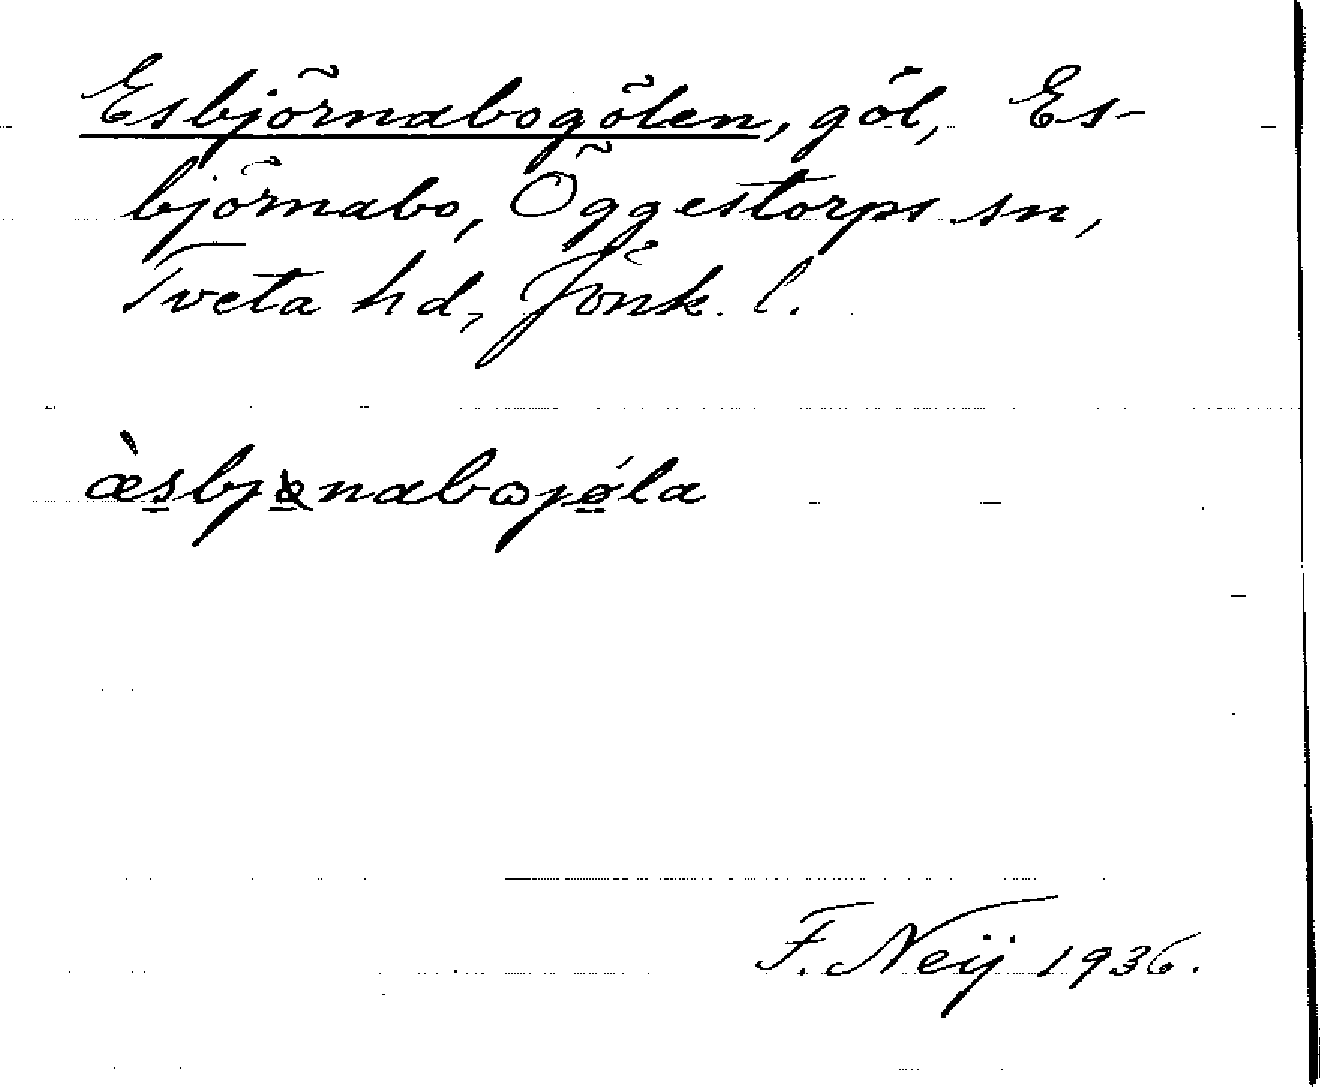 Esbjörnabogölen, göl, Es-
björnabo, Öggestorps sn,
Tveta hd, Jönk. l.
æ̀s̲bjø̲nabɷjǿ̲la
F. Neij 1936.